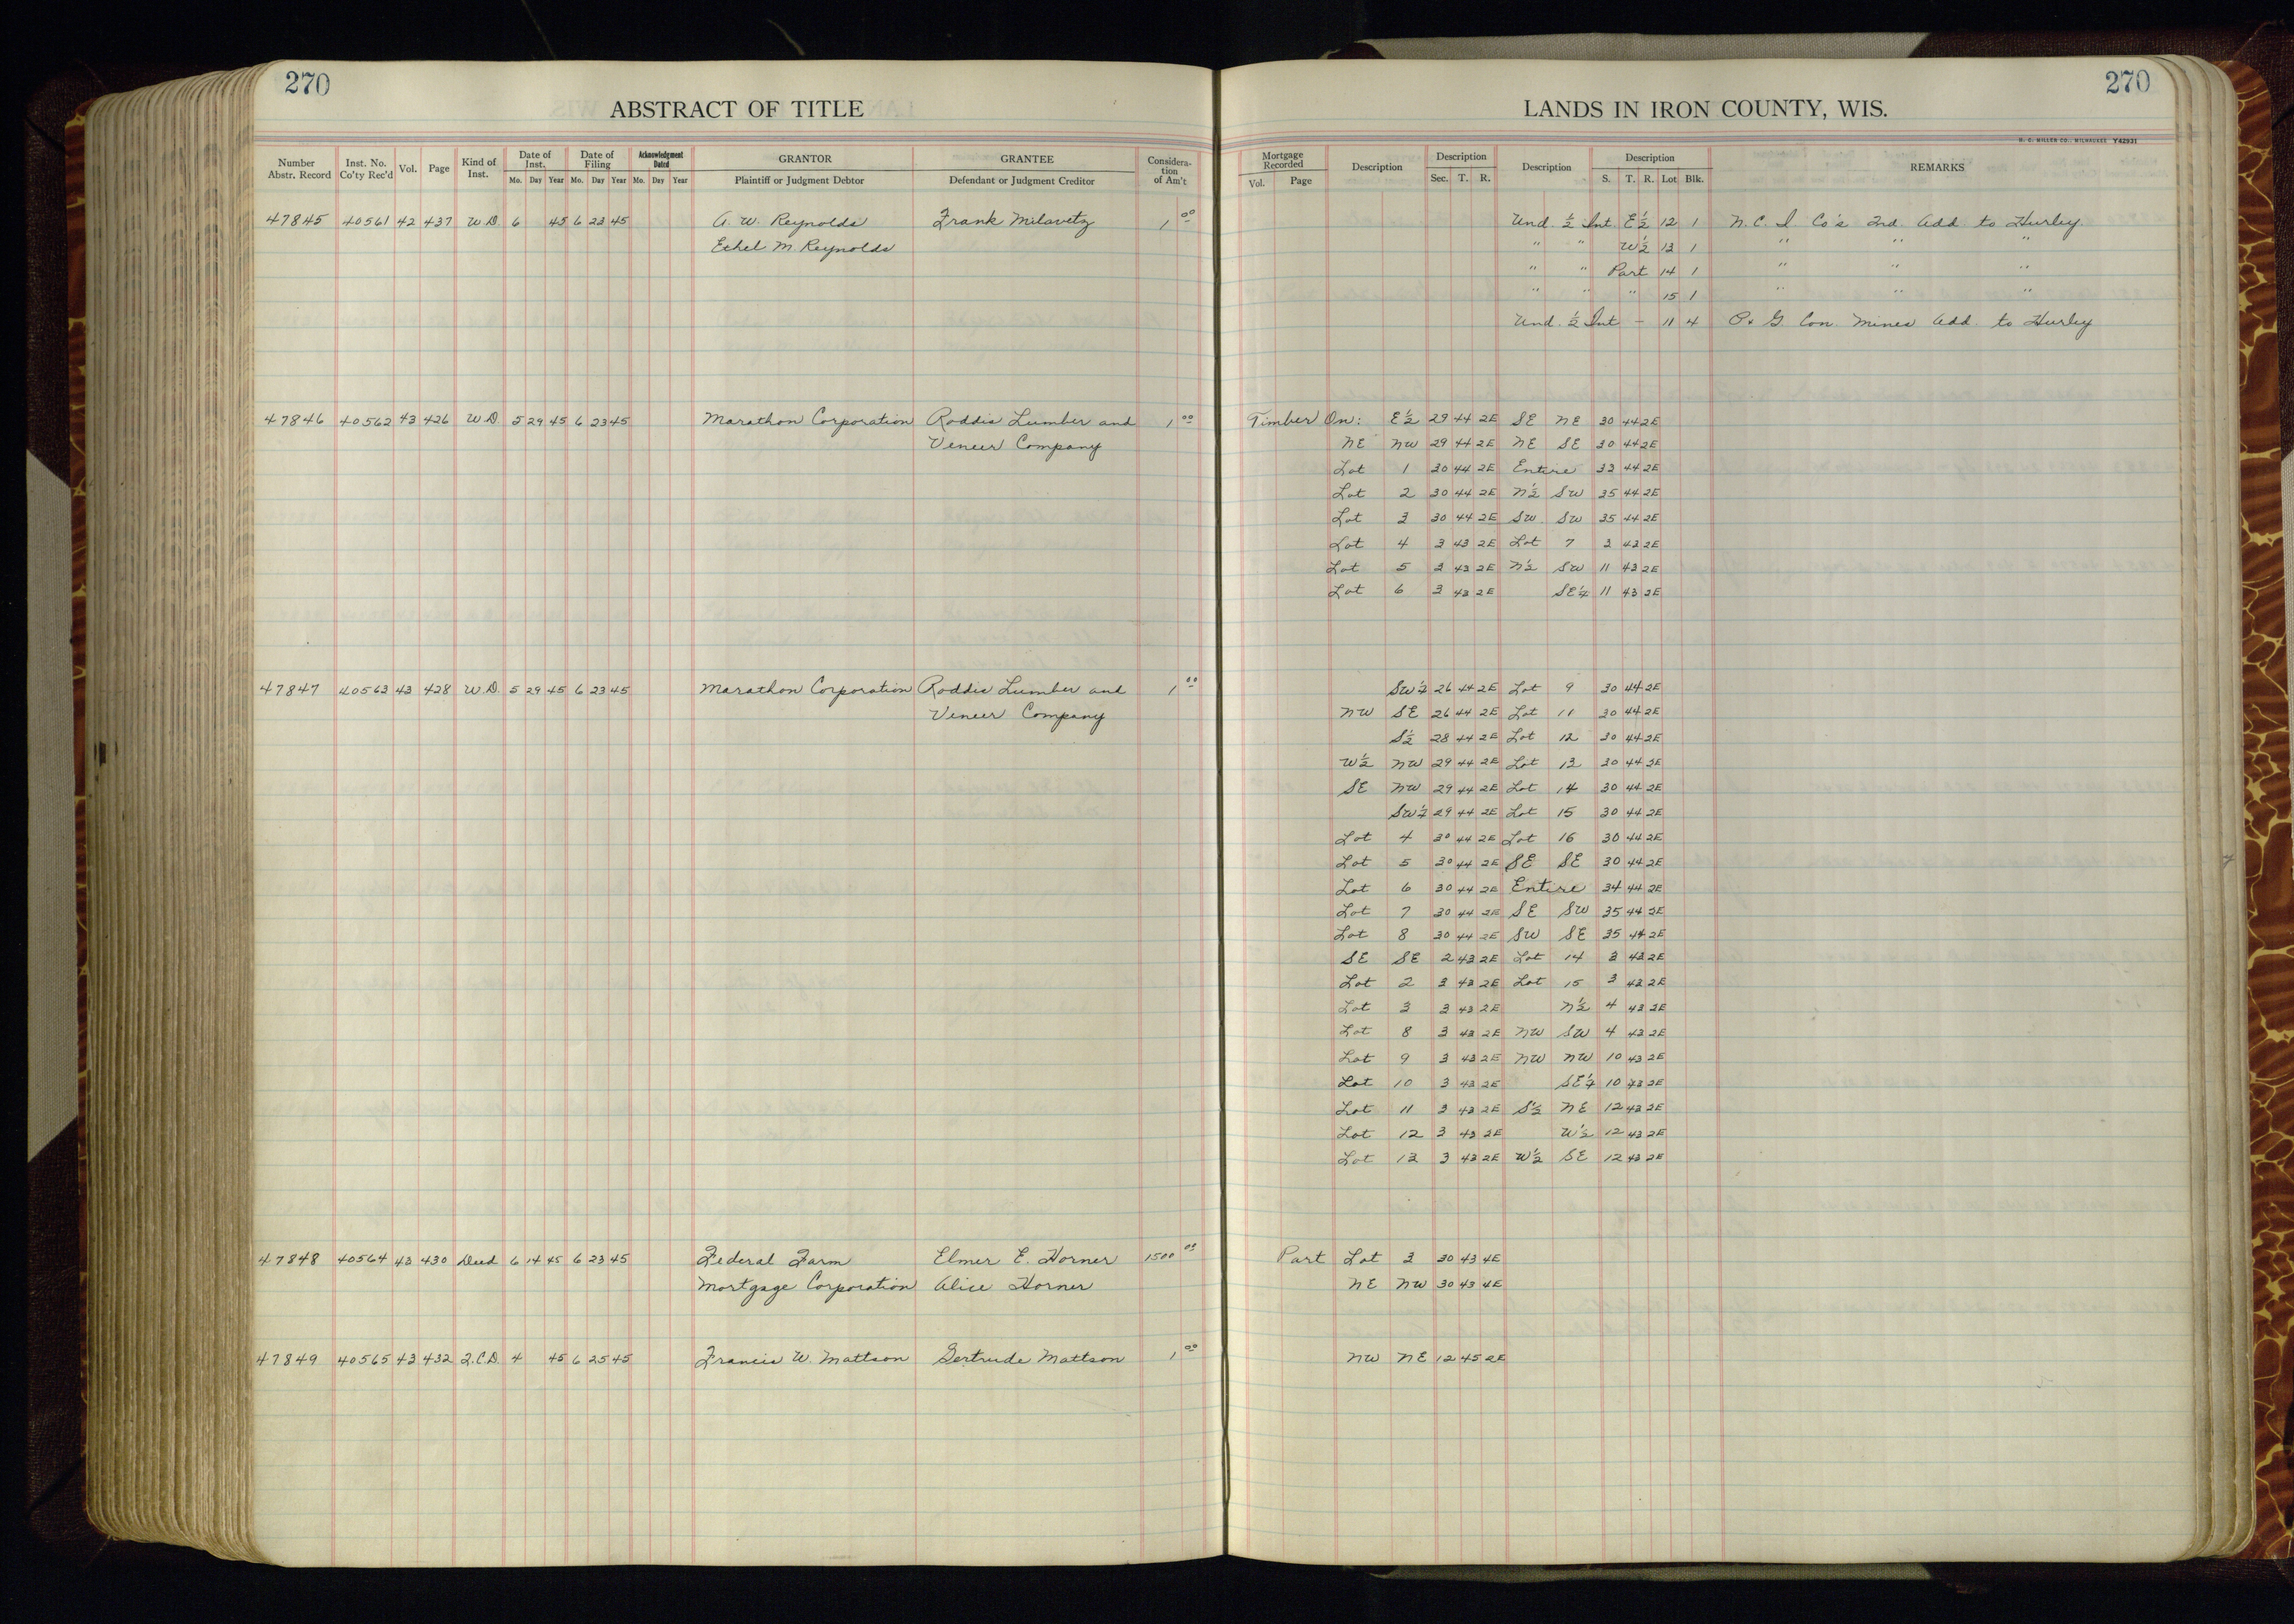 270
ABSTRACT OF TITLE
Number Abstr. Record | Inst. No. Co'ty Rec'd | Vol. | Page | Kind of Inst. | Date of Inst. Mo. Day Year | Date of Filing Mo. Day Year | Acknowledgment Dated Mo. Day Year | GRANTOR Plaintiff or Judgment Debtor | GRANTEE Defendant or Judgment Creditor | Consideration of Am't
47845 40561 42 437 W.D. 6 45 6 23 45 A. W. Reynolds Frank Milavetz 1 00
Ethel M. Reynolds
47846 40562 43 426 W.D. 5 29 45 6 23 45 Marathon Corporation Roddis Lumber and 1 00
Veneer Company
47847 40563 43 428 W.D. 5 29 45 6 23 45 Marathon Corporation Roddis Lumber and 1 00
Veneer Company
47848 40564 43 430 Deed 6 14 45 6 23 45 Federal Farm Elmer E. Horner 1500 00
Mortgage Corporation Alice Horner
47849 40565 43 432 Q.C.D. 4 45 6 25 45 Francis W. Mattson Gertrude Mattson 1 00
270
LANDS IN IRON COUNTY, WIS.
H. C. MILLER CO., MILWAUKEE Y42931
Mortgage Recorded Vol. Page | Description | Description Sec. T. R. | Description | Description S. T. R. Lot Blk. | REMARKS
Und. ½ Int E½ 12 1 N. C. I. Co's 2nd. Add. to Hurley
" " W½ 13 1 " " "
" " Part 14 1 " " "
" " " 15 1 " " "
Und. ½ Int - 11 4 O. & G Con. Mines Add. to Hurley
Timber On: E½ 29 44 2E SE NE 30 44 2E
NE NW 29 44 2E NE SE 30 44 2E
Lot 1 30 44 2E Entire 33 44 2E
Lot 2 30 44 2E N½ SW 35 44 2E
Lot 3 30 44 2E SW SW 35 44 2E
Lot 4 3 43 2E Lot 7 3 43 2E
Lot 5 3 43 2E N½ SW 11 43 2E
Lot 6 3 43 2E SE¼ 11 43 2E
SW¼ 26 44 2E Lot 9 30 44 2E
NW SE 26 44 2E Lot 11 30 44 2E
S½ 28 44 2E Lot 12 30 44 2E
W½ NW 29 44 2E Lot 13 30 44 2E
SE NW 29 44 2E Lot 14 30 44 2E
SW¼ 29 44 2E Lot 15 30 44 2E
Lot 4 30 44 2E Lot 16 30 44 2E
Lot 5 30 44 2E SE SE 30 44 2E
Lot 6 30 44 2E Entire 34 44 2E
Lot 7 30 44 2E SE SW 35 44 2E
Lot 8 30 44 2E SW SE 35 44 2E
SE SE 2 43 2E Lot 14 3 43 2E
Lot 2 3 43 2E Lot 15 3 43 2E
Lot 3 3 43 2E N½ 4 43 2E
Lot 8 3 43 2E NW SW 4 43 2E
Lot 9 3 43 2E NW NW 10 43 2E
Lot 10 3 43 2E SE¼ 10 43 2E
Lot 11 3 43 2E S½ NE 12 43 2E
Lot 12 3 43 2E W½ 12 43 2E
Lot 13 3 43 2E W½ SE 12 43 2E
Part Lot 3 30 43 4E
NE NW 30 43 4E
NW NE 12 45 2E